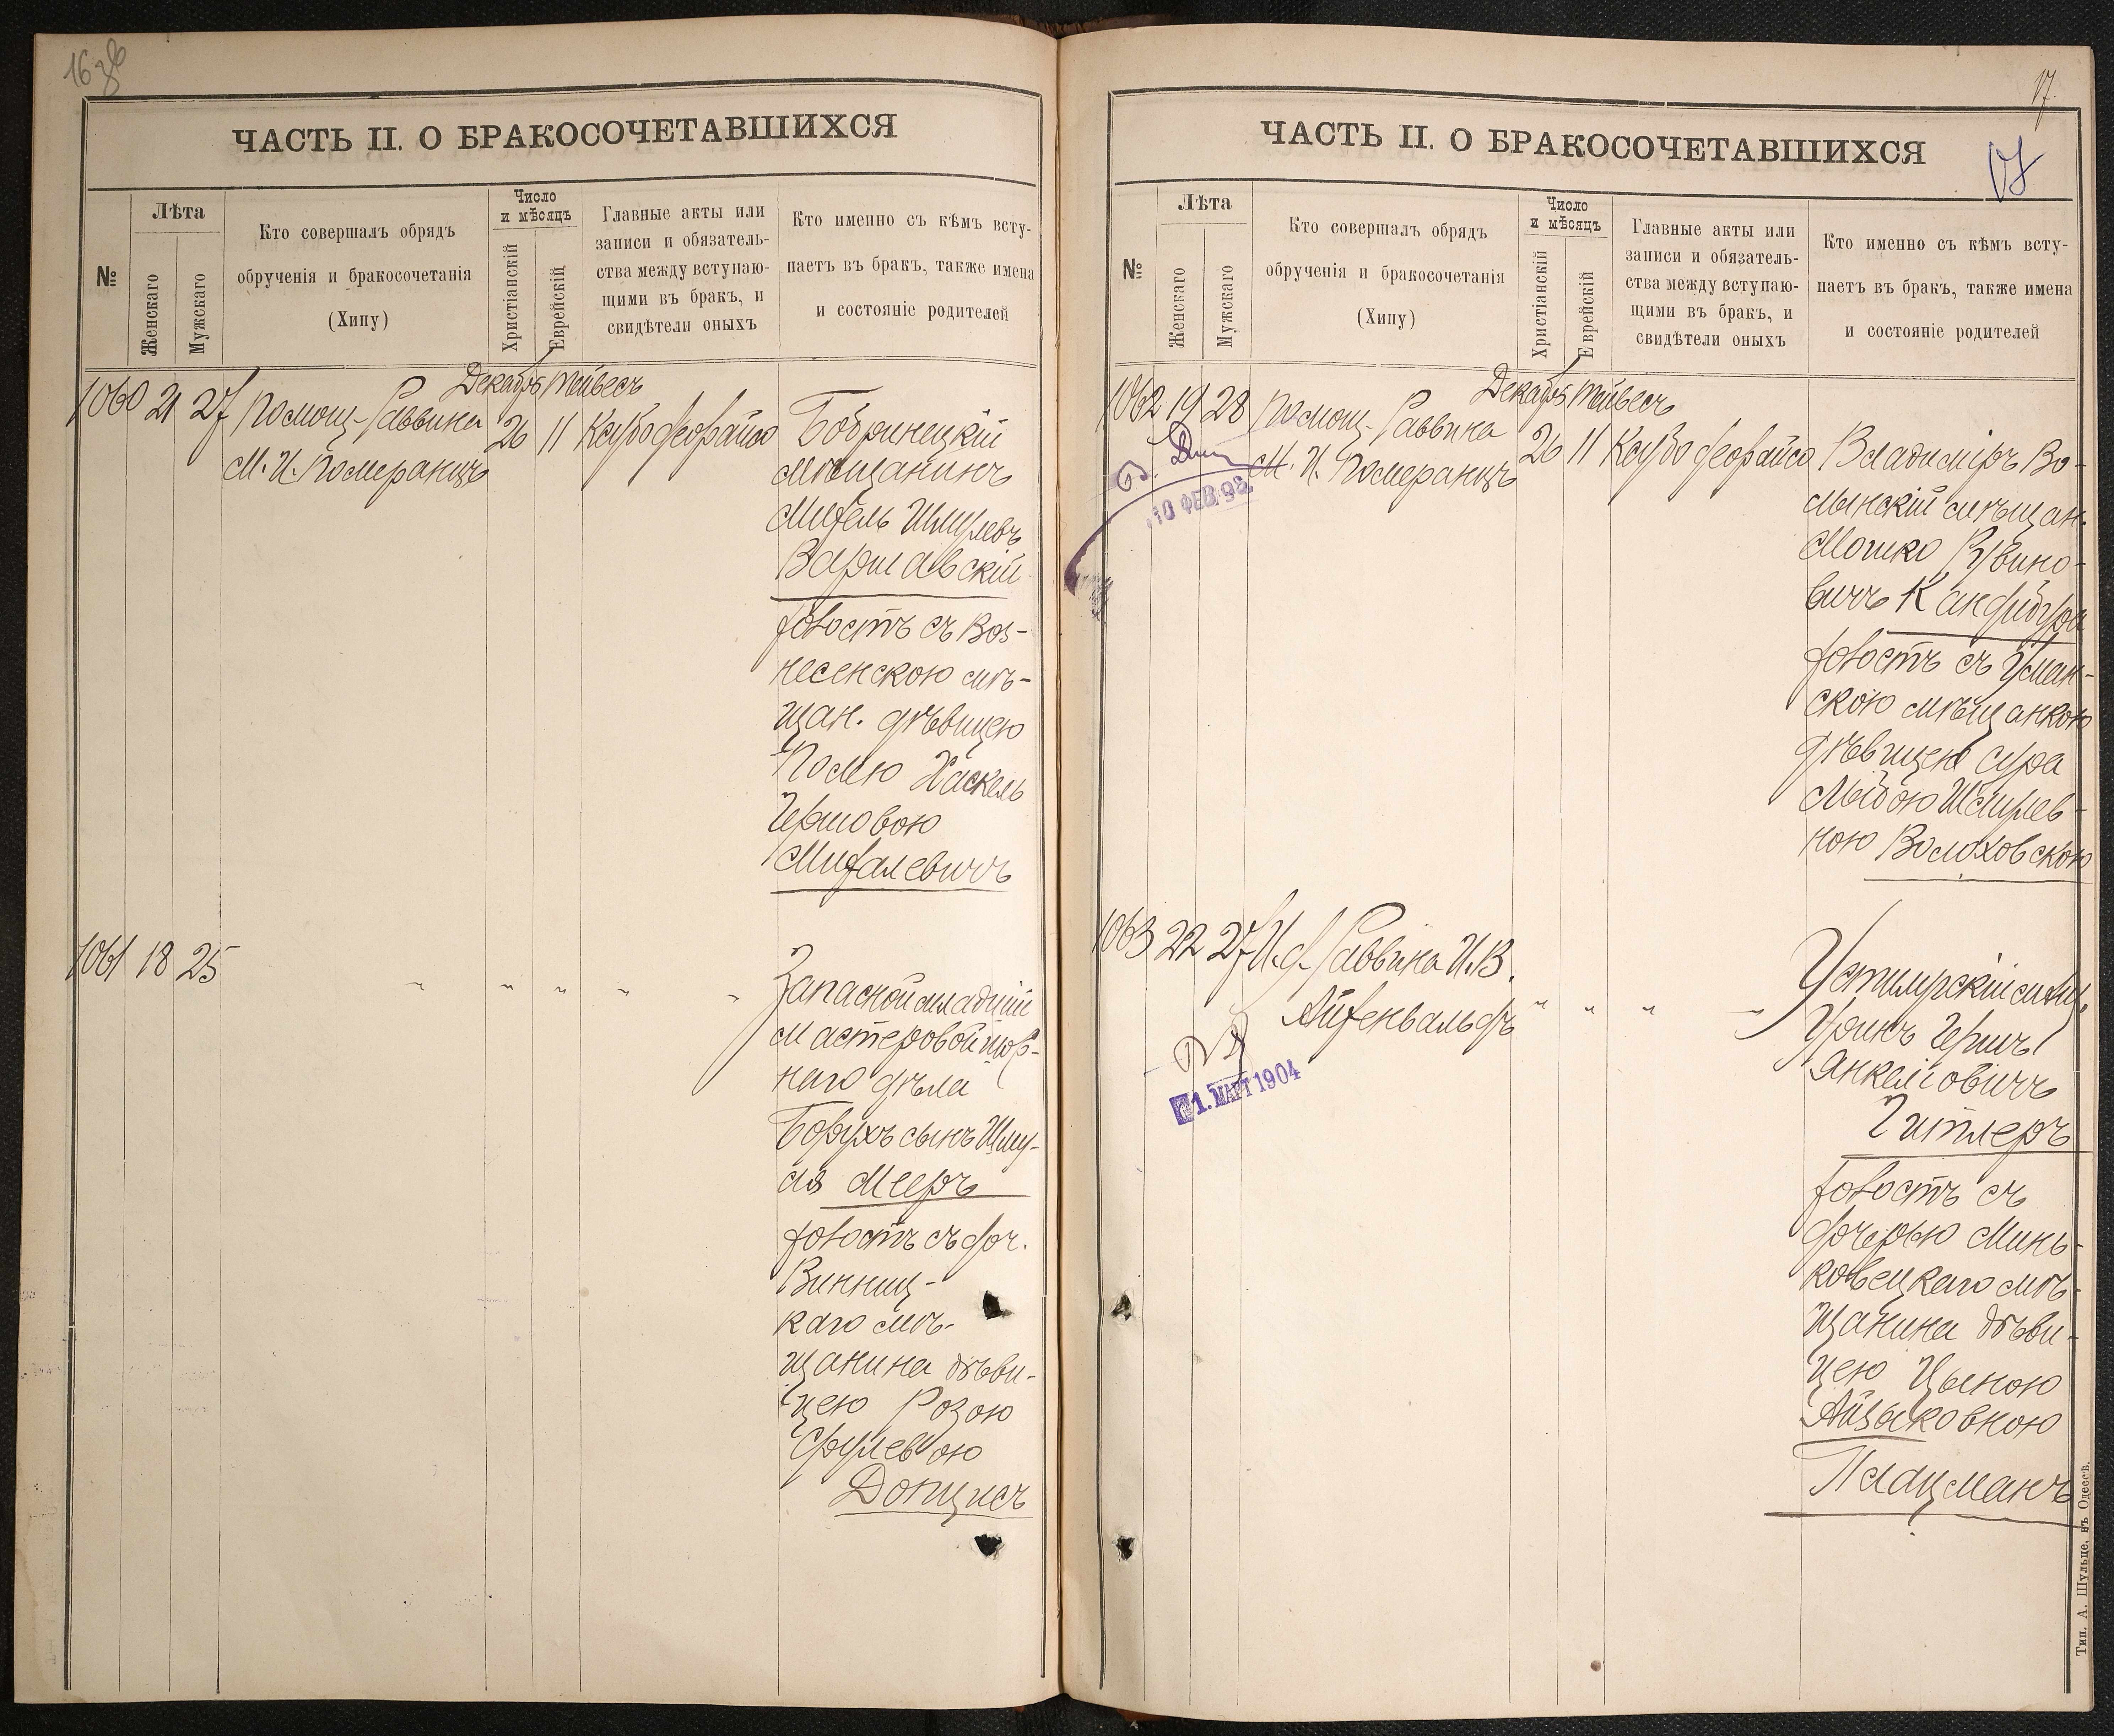 16 об
ЧАСТЬ II. О БРАКОСОЧЕТАВШИХСЯ
№
Лѣта
Женскаго
Мужскаго
Кто совершалъ обрядъ
обрученія и бракосочетанія
(Хипу)
Число
и мѣсяцъ
Христіанскій
Еврейскій
Главные акты или
записи и обязатель-
ства между вступаю-
щими въ бракъ, и
свидѣтели оныхъ
Кто именно съ кѣмъ всту-
паетъ въ бракъ, также имена
и состояніе родителей
Декабрь Тейвесъ
1060 21 27 Помощ. Раввина
М. И. Померанцъ
26 11 Ксубо
Бобринецкій
мѣщанинъ
Шмулевъ
Варшавскій
холостъ съ Воз-
несенскою мѣ-
щан. дѣвицею
Полею Хаскель
Гершовою
Михалевичъ
1061 18 25
" " " " "
Запасной младшій
мастеровой
наго дѣла
Борухъ сынъ Шму-
ля Мееръ
холостъ съ доч.
Винниц-
каго мѣ-
щанина дѣви-
цею Розою
Срулевою
17.
17
ЧАСТЬ II. О БРАКОСОЧЕТАВШИХСЯ
№
Лѣта
Женскаго
Мужскаго
Кто совершалъ обрядъ
обрученія и бракосочетанія
(Хипу)
Число
и мѣсяцъ
Христіанскій
Еврейскій
Главные акты или
записи и обязатель-
ства между вступаю-
щими въ бракъ, и
свидѣтели оныхъ
Кто именно съ кѣмъ всту-
паетъ въ бракъ, также имена
и состояніе родителей
Декабрь Тейвесъ
1062 19 28 Помощ. Раввина
М. И. Померанцъ
10 ФЕВ. 98
26 11 Ксубо
Владиміръ Во-
лынскій мѣщан.
Мошко Рувино-
вичъ
холостъ съ Уман-
скою мѣщанкою
дѣвицею Сура
Шмулев-
ною Волоховскою
1063 22 27 И. д. Раввина И. В.
Айзенвальдъ
1. МАРТ 1904
" " " "
мѣщ.
Гершъ
Янкелiовичъ
Гитлеръ
холостъ съ
дочерью Минь-
ковецкаго мѣ-
щанина дѣви-
цею
Айзыковною
Плацманъ
Тип. А. Шульце, въ Одессѣ.